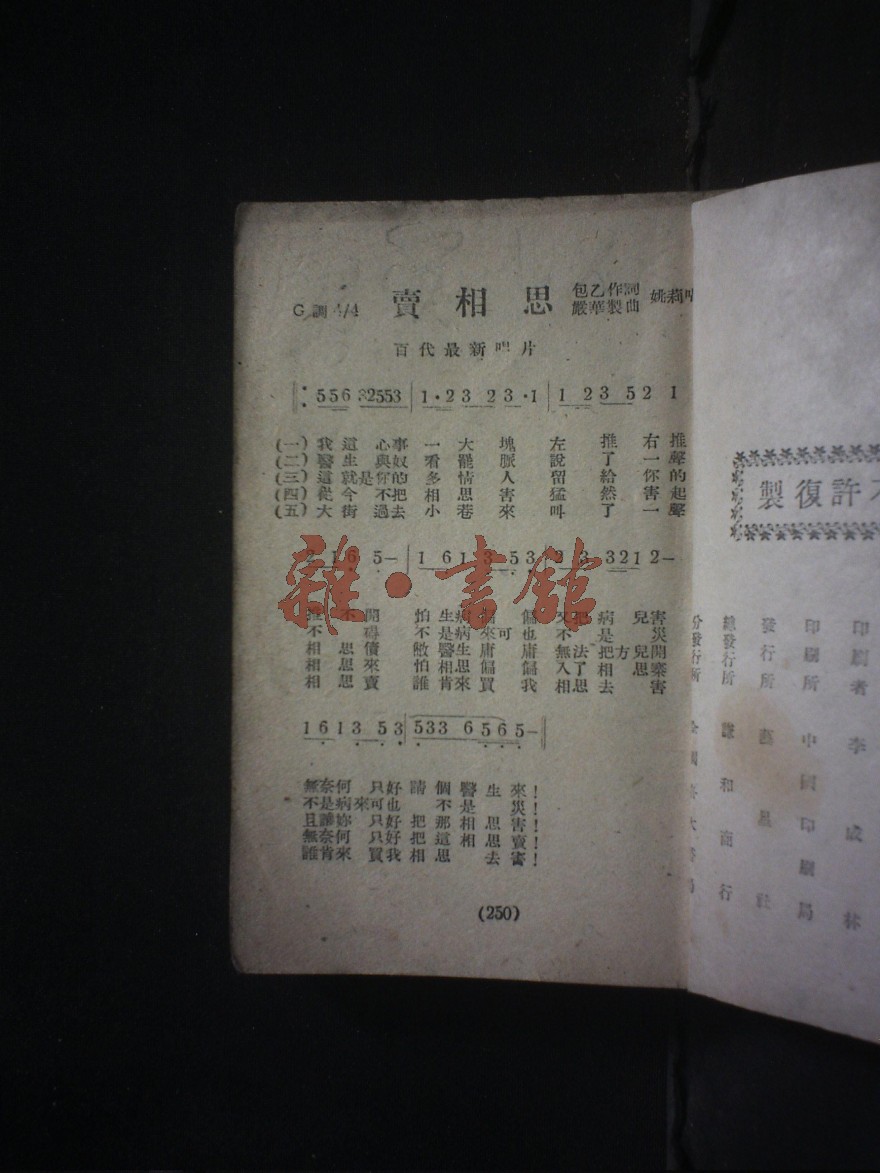 G調 4/4 賣相思 包乙作詞 姚莉唱
嚴華製曲
百代最新唱片
556 32553 | 1·23 23·1 | 12 3 52 1
(一) 我這心事一大塊 左推右推
(二) 醫生與奴一看罷脈 說了一聲
(三) 這就是你的多情人 留給你的
(四) 從今不把相思害 猛然害的起
(五) 大街過去小巷來 叫了一聲
2 1 6 5— | 1 6 1 3 5 3 | 2 3 3 2 1 2—
推不開 怕生病 偏又把病兒害
不礙 不是病來可也不是災
相思債 醫生 無法把方兒開
相思來 怕相思偏偏入了相思寨
相思賣 誰肯來買我相思去害
1 6 1 3 5 3 | 5 3 3 6 5 6 5—
無奈何只好請個醫生來!
不是病來可也不是災!
只好把那相思害!
無奈何只好把這相思賣!
誰肯來買我相思去害!
(250)
雜·書館
不許復製
印刷者 李成林
印刷所 中國印刷局
發行所 社
總發行所 謙和商行
分發行所 全國各大書局